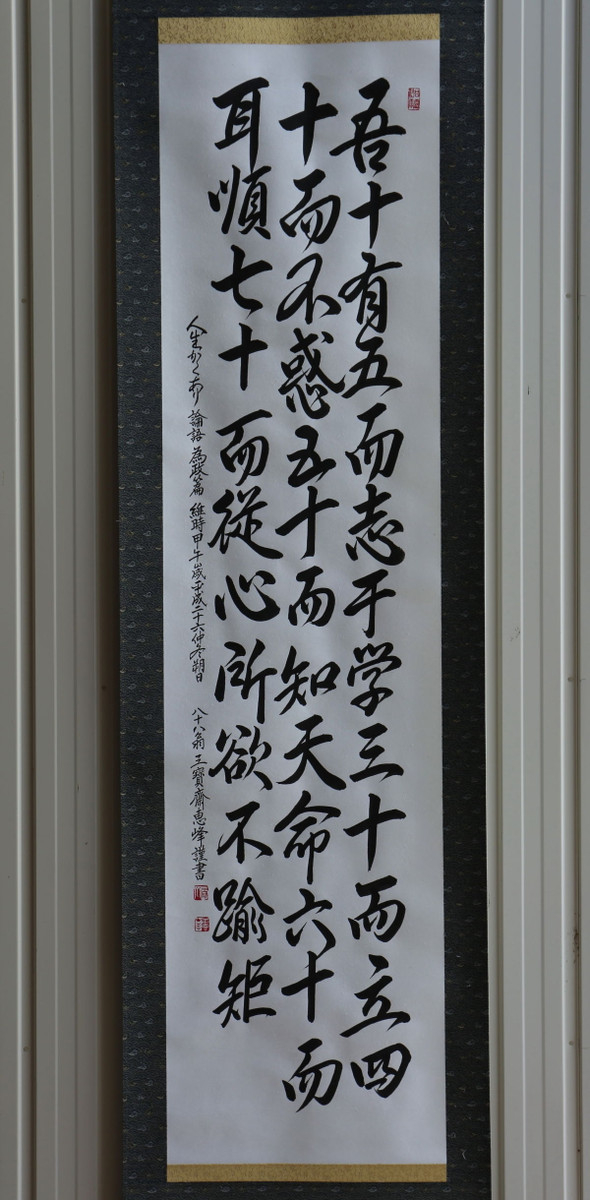 吾十有五而志于学三十而立四
十而不惑五十而知天命六十而
耳順七十而従心所欲不踰矩
人生かくあり 論語為政篇 維時甲午歳平成二十六仲冬朔日 八十八翁 三寶齋恵峰謹書